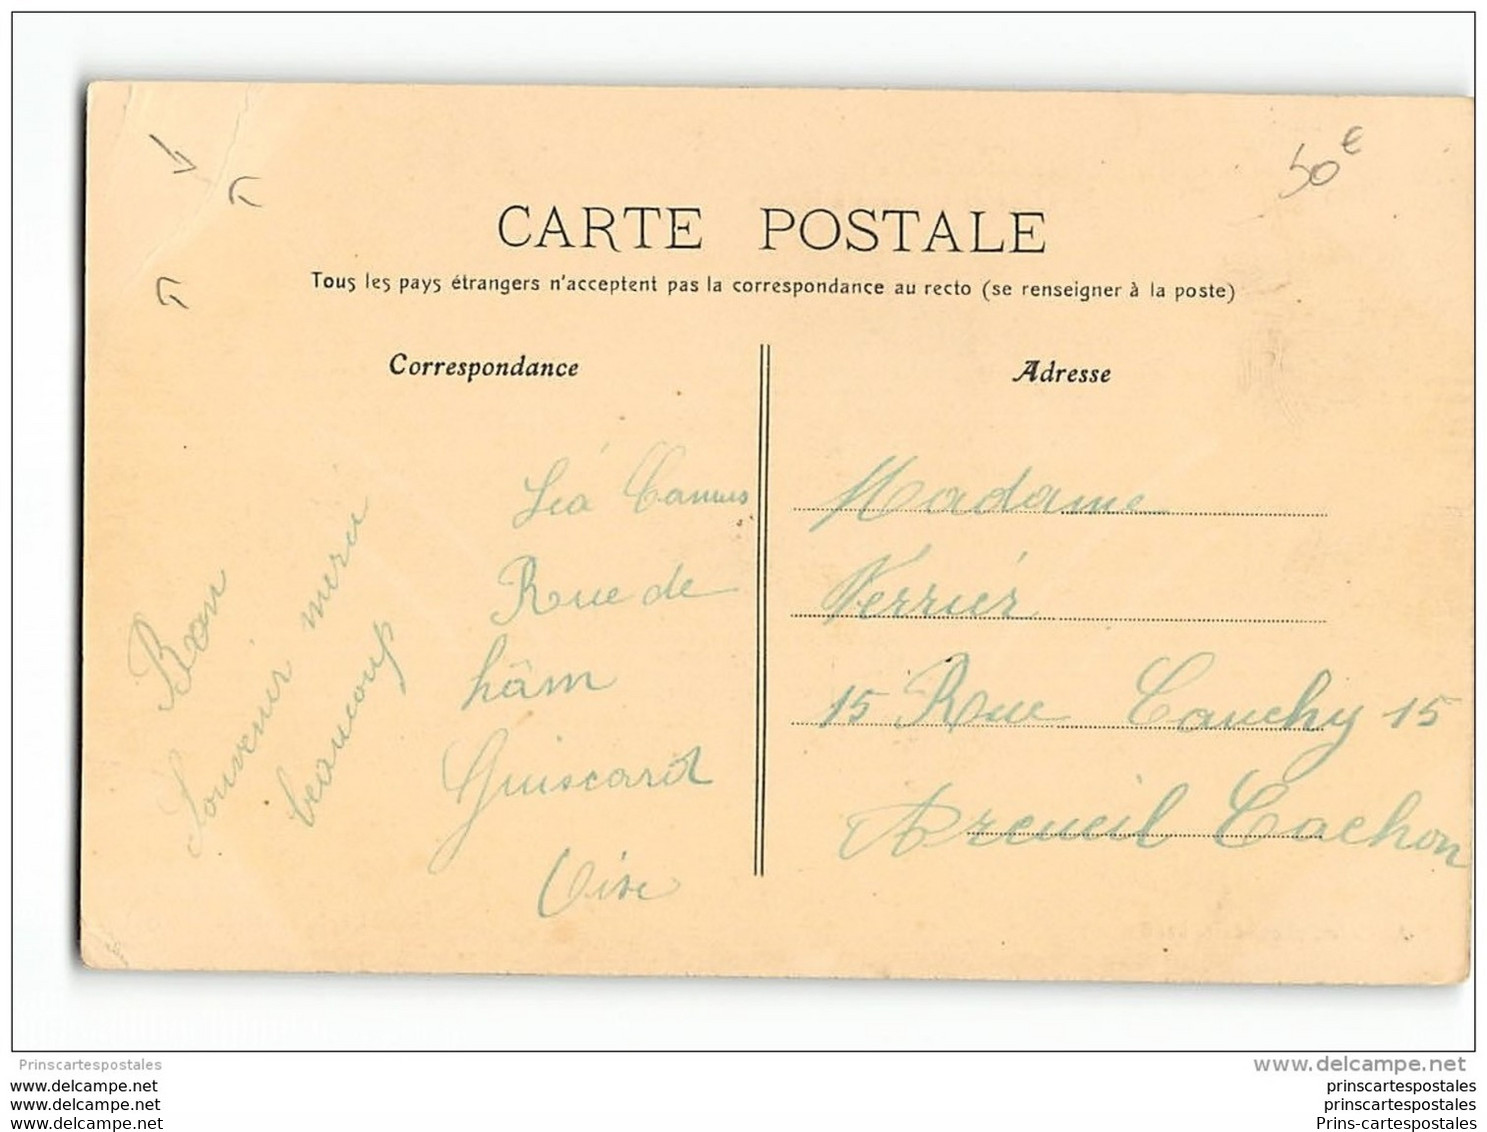 50€
CARTE POSTALE
Tous les pays étrangers n'acceptent pas la correspondance au recto (se renseigner à la poste)
Correspondance
Adresse
Bon
Souvenir merci
beaucoup
Léa Camus
Rue de
hâm
Guiscard
Oise
Madame
Verrier
15 Rue Cauchy 15
Arcueil Cachon
Prinscartespostales
www.delcampe.net
www.delcampe.net
www.delcampe.net
www.delcampe.net
prinscartespostales
prinscartespostales
Prins-cartespostales